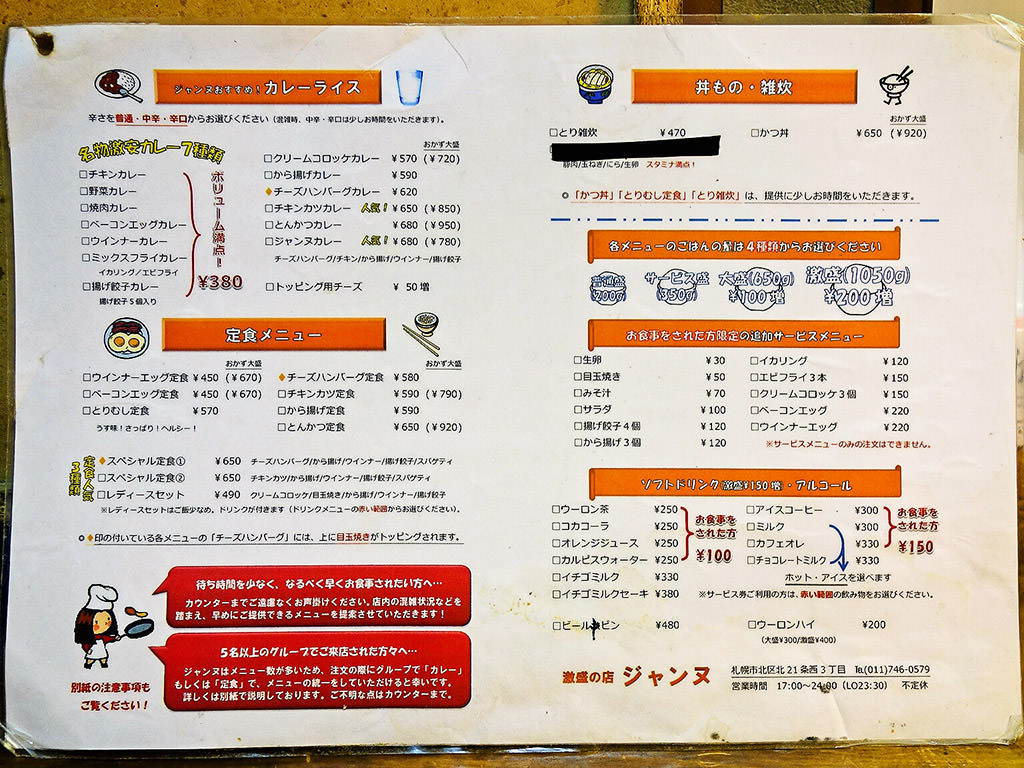 ジャンヌおすすめ!カレーライス
辛さを普通・中辛・辛口からお選びください(混雑時、中辛・辛口は少しお時間をいただきます)。
名物激安カレー7種類
□チキンカレー
□野菜カレー
□焼肉カレー
□ベーコンエッグカレー
□ウインナーカレー
□ミックスフライカレー
イカリング/エビフライ
□揚げ餃子カレー
揚げ餃子5個入り
ボリューム満点!
¥380
おかず大盛
□クリームコロッケカレー ¥570 (¥720)
□から揚げカレー ¥590
◆チーズハンバーグカレー ¥620
□チキンカツカレー 人気! ¥650 (¥850)
□とんかつカレー ¥680 (¥950)
□ジャンヌカレー 人気! ¥680 (¥780)
チーズハンバーグ/チキン/から揚げ/ウインナー/揚げ餃子
□トッピング用チーズ ¥ 50増
定食メニュー
おかず大盛
□ウインナーエッグ定食 ¥450 (¥670)
□ベーコンエッグ定食 ¥450 (¥670)
□とりむし定食 ¥570
うす味!さっぱり!ヘルシー!
おかず大盛
◆チーズハンバーグ定食 ¥580
□チキンカツ定食 ¥590 (¥790)
□から揚げ定食 ¥590
□とんかつ定食 ¥650 (¥920)
定食人気3種類
◆スペシャル定食① ¥650 チーズハンバーグ/から揚げ/ウインナー/揚げ餃子/スパゲティ
□スペシャル定食② ¥650 チキンカツ/から揚げ/ウインナー/揚げ餃子/スパゲティ
□レディースセット ¥490 クリームコロッケ/目玉焼き/から揚げ/ウインナー/揚げ餃子
※レディースセットはご飯少なめ。ドリンクが付きます(ドリンクメニューの赤い範囲からお選びください)。
◎◆印の付いている各メニューの「チーズハンバーグ」には、上に目玉焼きがトッピングされます。
待ち時間を少なく、なるべく早くお食事されたい方へ…
カウンターまでご遠慮なくお声掛けください。店内の混雑状況などを
踏まえ、早めにご提供できるメニューを提案させていただきます!
5名以上のグループでご来店された方々へ…
ジャンヌはメニュー数が多いため、注文の際にグループで「カレー」
もしくは「定食」で、メニューの統一をしていただけると幸いです。
詳しくは別紙で説明しております。ご不明な点はカウンターまで。
別紙の注意事項も
ご覧ください!
丼もの・雑炊
おかず大盛
□とり雑炊 ¥470
□かつ丼 ¥650 (¥920)
豚肉/玉ねぎ/にら/生卵 スタミナ満点!
◎「かつ丼」「とりむし定食」「とり雑炊」は、提供に少しお時間をいただきます。
各メニューのごはんの量は4種類からお選びください
普通盛(200g)
サービス盛(350g)
大盛(650g)¥100増
激盛(1050g)¥200増
お食事をされた方限定の追加サービスメニュー
□生卵 ¥30
□目玉焼き ¥50
□みそ汁 ¥70
□サラダ ¥100
□揚げ餃子4個 ¥120
□から揚げ3個 ¥120
□イカリング ¥120
□エビフライ3本 ¥150
□クリームコロッケ3個 ¥150
□ベーコンエッグ ¥220
□ウインナーエッグ ¥220
※サービスメニューのみの注文はできません。
ソフトドリンク激盛¥150増・アルコール
□ウーロン茶 ¥250
□コカコーラ ¥250
□オレンジジュース ¥250
□カルピスウォーター ¥250
□イチゴミルク ¥330
□イチゴミルクセーキ ¥380
お食事をされた方¥100
□アイスコーヒー ¥300
□ミルク ¥300
□カフェオレ ¥330
□チョコレートミルク ¥330
お食事をされた方¥150
ホット・アイスを選べます
※サービス券ご利用の方は、赤い範囲の飲み物をお選びください。
□ビール ビン ¥480
□ウーロンハイ ¥200
(大盛¥300/激盛¥400)
激盛の店 ジャンヌ
札幌市北区北21条西3丁目 ℡(011)746-0579
営業時間 17:00〜24:00(LO23:30) 不定休